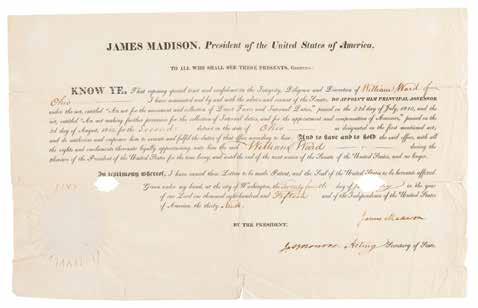 JAMES MADISON, President of the United States of America,
TO ALL WHO SHALL SEE THESE PRESENTS, GREETING:
KNOW YE, That reposing special trust and confidence in the Integrity, Diligence and Discretion of William Ward of
Ohio I have nominated and by and with the advice and consent of the Senate, DO APPOINT HIM PRINCIPAL ASSESSOR
under the act, entitled "An act for the assessment and collection of Direct Taxes and Internal Duties," passed on the 22d day of July, 1813, and the
act, entitled "An act making further provision for the collection of internal duties, and for the appointment and compensation of Assessors," passed on the
2d day of August, 1813, for the Second district in the state of Ohio as designated in the first mentioned act;
and do authorize and empower him to execute and fulfil the duties of that office according to law: And to have and to hold the said office, with all
the rights and emoluments thereunto legally appertaining unto him the said William Ward during
the pleasure of the President of the United States for the time being, and until the end of the next session of the Senate of the United States, and no longer.
In testimony whereof, I have caused these Letters to be made Patent, and the Seal of the United States to be hereunto affixed.
Given under my hand, at the city of Washington, the twenty fourth day of in the year
of our Lord one thousand eight hundred and Fifteen and of the Independence of the United States
of America, the thirty Ninth.
James Madison
BY THE PRESIDENT,
Jas Monroe Acting Secretary of State.